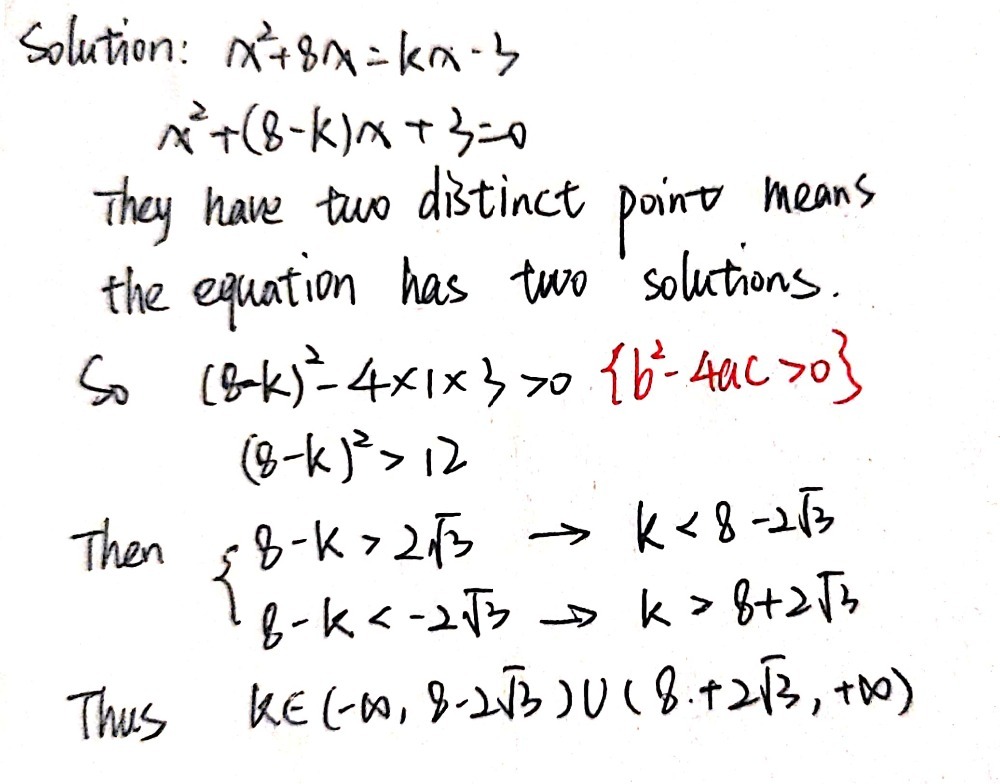 Solution: x²+8x=kx-3
x²+(8-k)x+3=0
They have two distinct point means
the equation has two solutions.
So (8-k)²-4×1×3>0 {b²-4ac>0}
(8-k)²>12
Then { 8-k>2√3 → k<8-2√3
8-k<-2√3 → k>8+2√3
Thus k∈(-∞, 8-2√3)∪(8+2√3, +∞)